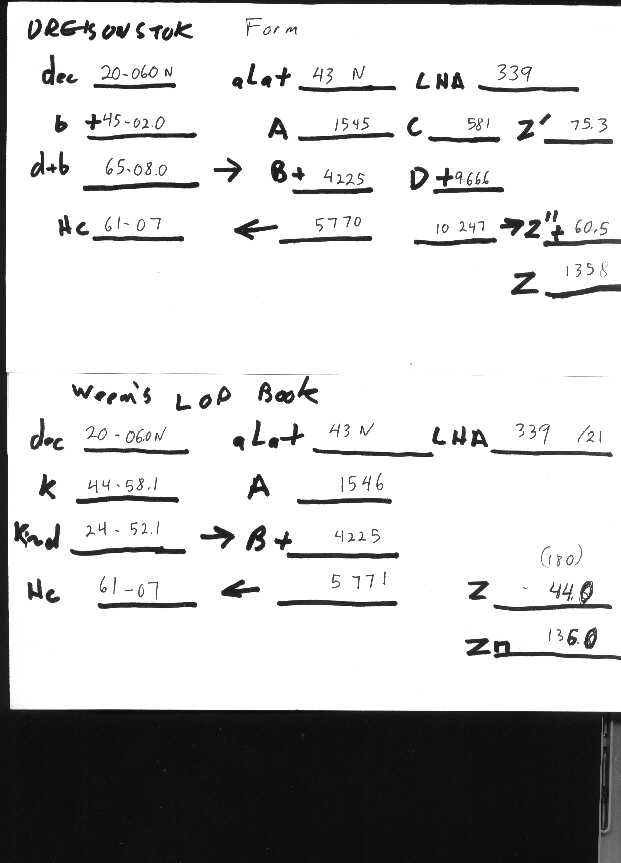 DREISONSTOK Form
dec 20-060 N aLat 43 N LHA 339
b +45-02.0 A 1545 C 581 Z' 75.3
d+b 65.08.0 → B+ 4225 D +9666
Hc 61-07 ← 5770 10 247 → Z"+ 60.5
Z 135 8
Weem's LOP Book
dec 20-06.0N aLat 43 N LHA 339 /21
K 44-58.1 A 1546
K~d 24-52.1 → B+ 4225
(180)
Hc 61-07 ← 5 771 Z - 44.0
Zn 136.0